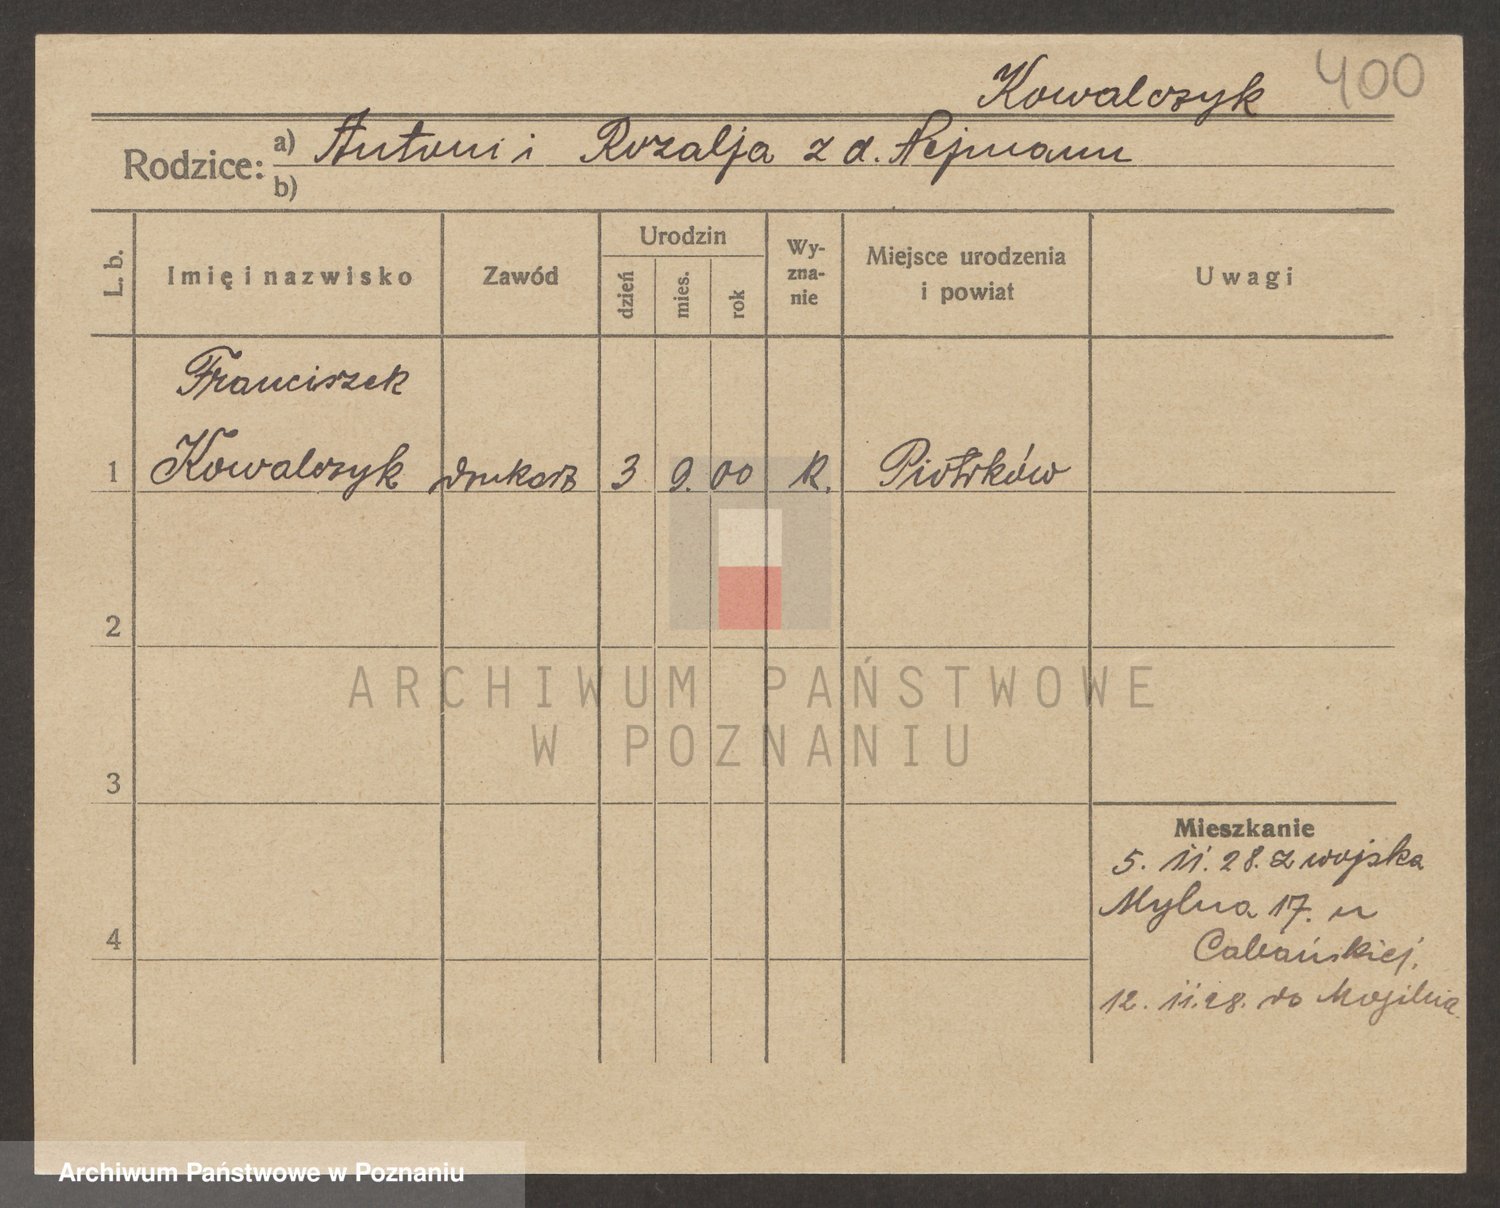 Kowalczyk 400
Rodzice: a) Antoni i Rozalja z d. Nejmann
b)
L. b. Imię i nazwisko Zawód Urodzin dzień mies. rok Wy-zna-nie Miejsce urodzenia i powiat Uwagi
Franciszek
1 Kowalczyk drukarz 3 9. 00 R. Piotrków
2
ARCHIWUM PAŃSTWOWE
W POZNANIU
3
Mieszkanie
5. 11. 28. z wojska
Mylna 17. u
4
Cabańskiej.
12. 11. 28. do Mogilna.
Archiwum Państwowe w Poznaniu